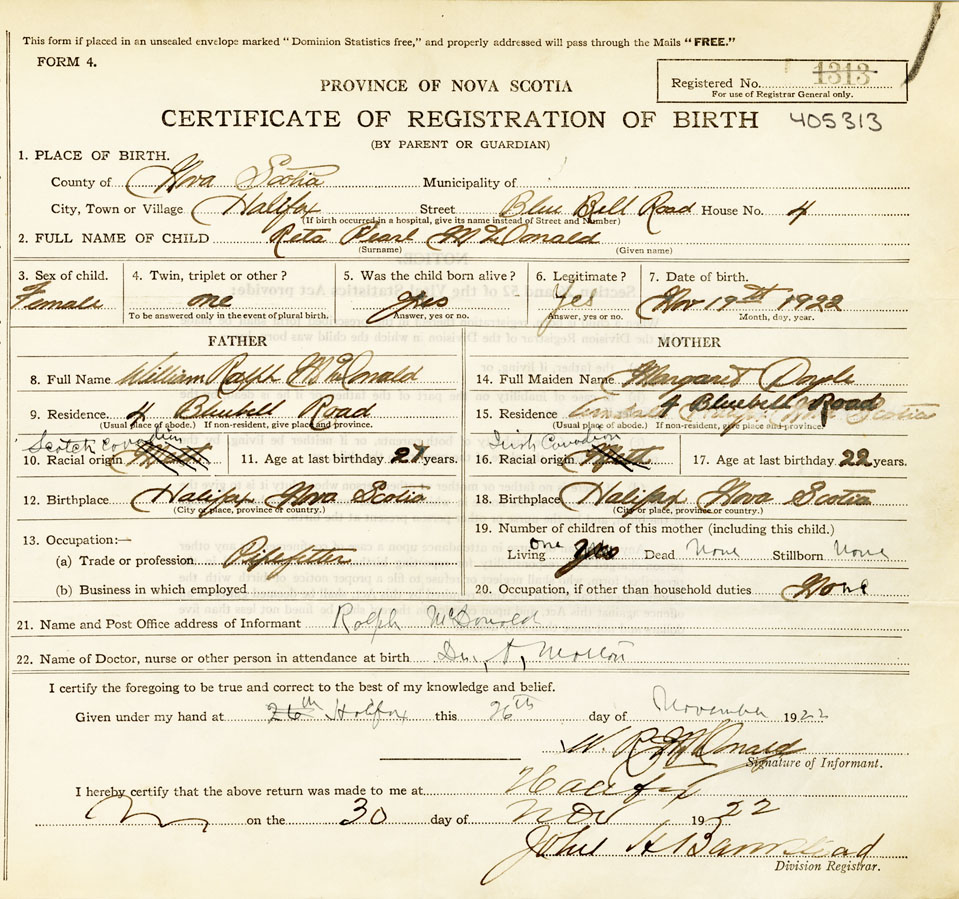 This form if placed in an unsealed envelope marked "Dominion Statistics free," and properly addressed will pass through the Mails "FREE."
FORM 4.
PROVINCE OF NOVA SCOTIA
Registered No. 1313
For use of Registrar General only.
CERTIFICATE OF REGISTRATION OF BIRTH 405313
(BY PARENT OR GUARDIAN)
1. PLACE OF BIRTH.
County of Nova Scotia Municipality of
City, Town or Village Halifax Street Blue Bell Road House No. 4
(If birth occurred in a hospital, give its name instead of Street and Number)
2. FULL NAME OF CHILD Reta Pearl McDonald
(Surname) (Given name)
3. Sex of child. 4. Twin, triplet or other? 5. Was the child born alive? 6. Legitimate? 7. Date of birth.
Female one Yes Yes Nov 19th 1922
To be answered only in the event of plural birth. Answer, yes or no. Answer, yes or no. Month, day, year.
FATHER MOTHER
8. Full Name William Ralph McDonald 14. Full Maiden Name Margaret Doyle
9. Residence 4 Bluebell Road 15. Residence 4 Bluebell Road
(Usual place of abode.) If non-resident, give place and province. (Usual place of abode.) If non-resident, give place and province.
Scotch Canadian Irish Canadian
10. Racial origin 11. Age at last birthday 27 years. 16. Racial origin 17. Age at last birthday 22 years.
12. Birthplace Halifax Nova Scotia 18. Birthplace Halifax Nova Scotia
(City or place, province or country.) (City or place, province or country.)
13. Occupation:— 19. Number of children of this mother (including this child.)
(a) Trade or profession Pipefitter Living one Dead None Stillborn None
(b) Business in which employed 20. Occupation, if other than household duties None
21. Name and Post Office address of Informant Ralph McDonald
22. Name of Doctor, nurse or other person in attendance at birth Dr.
I certify the foregoing to be true and correct to the best of my knowledge and belief.
Given under my hand at 26th Halifax this 26th day of November 1922
W. R. McDonald
Signature of Informant.
I hereby certify that the above return was made to me at Halifax
on the 30 day of Nov 1922
John H Barnstead
Division Registrar.